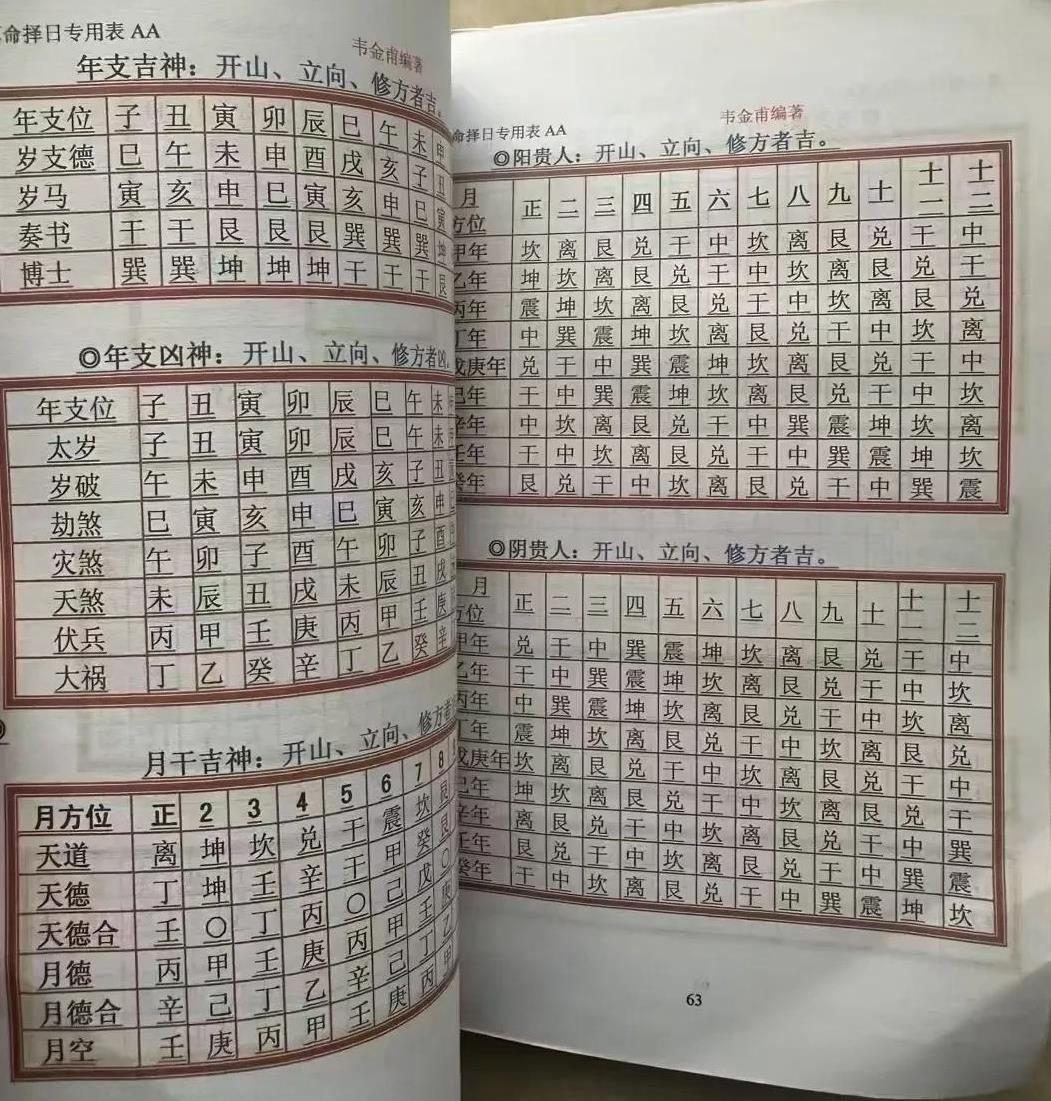 命择日专用表 AA
韦金甫编著
年支吉神：开山、立向、修方者吉。
年支位 子 丑 寅 卯 辰 巳 午 未 申
岁支德 巳 午 未 申 酉 戌 亥 子 丑
岁马 寅 亥 申 巳 寅 亥 申 巳 寅
奏书 干 干 艮 艮 艮 巽 巽 巽 坤
博士 巽 巽 坤 坤 坤 干 干 干 艮
◎年支凶神：开山、立向、修方者凶
年支位 子 丑 寅 卯 辰 巳 午 未
太岁 子 丑 寅 卯 辰 巳 午 未
岁破 午 未 申 酉 戌 亥 子 丑
劫煞 巳 寅 亥 申 巳 寅 亥 申
灾煞 午 卯 子 酉 午 卯 子 酉
天煞 未 辰 丑 戌 未 辰 丑 戌
伏兵 丙 甲 壬 庚 丙 甲 壬 庚
大祸 丁 乙 癸 辛 丁 乙 癸 辛
月干吉神：开山、立向、修方者
月方位 正 2 3 4 5 6 7 8
天道 离 坤 坎 兑 干 震 坎 艮
天德 丁 坤 壬 辛 干 甲 癸 艮
天德合 壬 〇 丁 丙 〇 己 戊 〇
月德 丙 甲 壬 庚 丙 甲 壬 庚
月德合 辛 己 丁 乙 辛 己 丁 乙
月空 壬 庚 丙 甲 壬 庚 丙 甲
命择日专用表 AA
韦金甫编著
◎阳贵人：开山、立向、修方者吉。
月
方位 正 二 三 四 五 六 七 八 九 十 十一 十二
甲年 坎 离 艮 兑 干 中 坎 离 艮 兑 干 中
乙年 坤 坎 离 艮 兑 干 中 坎 离 艮 兑 干
丙年 震 坤 坎 离 艮 兑 干 中 坎 离 艮 兑
丁年 中 巽 震 坤 坎 离 艮 兑 干 中 坎 离
戊庚年 兑 干 中 巽 震 坤 坎 离 艮 兑 干 中
己年 干 中 巽 震 坤 坎 离 艮 兑 干 中 坎
辛年 中 坎 离 艮 兑 干 中 巽 震 坤 坎 离
壬年 干 中 坎 离 艮 兑 干 中 巽 震 坤 坎
癸年 艮 兑 干 中 坎 离 艮 兑 干 中 巽 震
◎阴贵人：开山、立向、修方者吉。
月
方位 正 二 三 四 五 六 七 八 九 十 十一 十二
甲年 兑 干 中 巽 震 坤 坎 离 艮 兑 干 中
乙年 干 中 巽 震 坤 坎 离 艮 兑 干 中 坎
丙年 中 巽 震 坤 坎 离 艮 兑 干 中 坎 离
丁年 震 坤 坎 离 艮 兑 干 中 坎 离 艮 兑
戊庚年 坎 离 艮 兑 干 中 坎 离 艮 兑 干 中
己年 坤 坎 离 艮 兑 干 中 坎 离 艮 兑 干
辛年 离 艮 兑 干 中 坎 离 艮 兑 干 中 巽
壬年 艮 兑 干 中 坎 离 艮 兑 干 中 巽 震
癸年 干 中 坎 离 艮 兑 干 中 巽 震 坤 坎
63